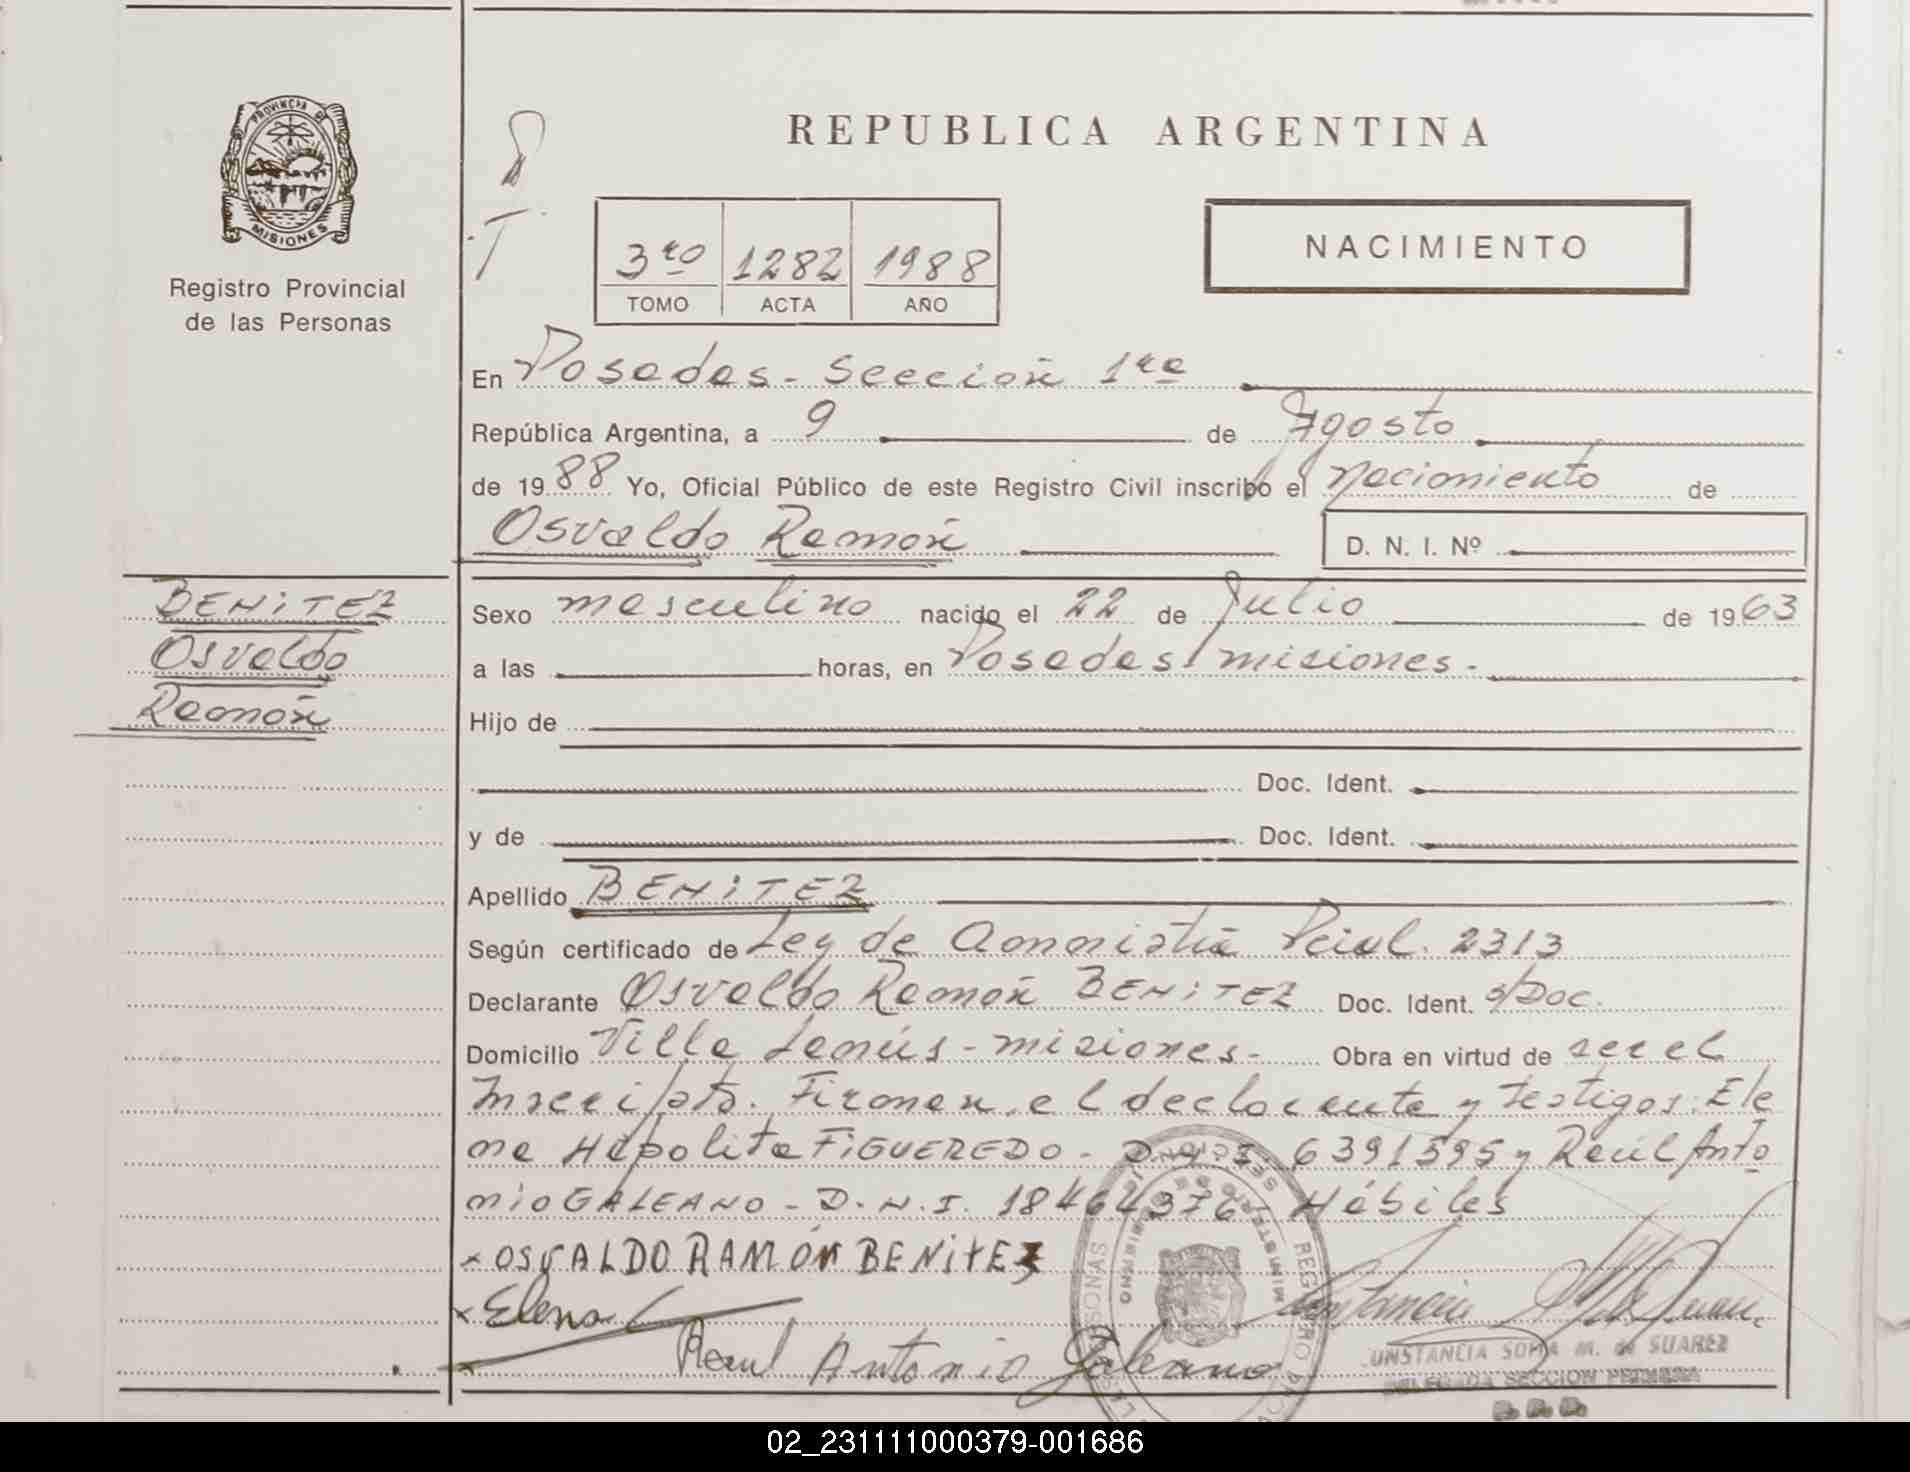 REPUBLICA ARGENTINA
PROVINCIA DE
MISIONES
Registro Provincial
de las Personas
3ro 1282 1988
TOMO ACTA AÑO
NACIMIENTO
En Posadas - Sección 1ra
República Argentina, a 9 de Agosto
de 1988 Yo, Oficial Público de este Registro Civil inscribo el nacimiento de
Osvaldo Ramón D. N. I. Nº
BENITEZ
Osvaldo
Ramón
Sexo masculino nacido el 22 de Julio de 1963
a las horas, en Posadas misiones.
Hijo de
Doc. Ident.
y de Doc. Ident.
Apellido BENITEZ
Según certificado de Ley de Amnistía Pcial. 2313
Declarante Osvaldo Ramón BENITEZ Doc. Ident. s/Doc.
Domicilio Villa Lanús - misiones - Obra en virtud de ser el
Inscripto. Firman, el declarante y testigos: Ele
na Hipolita FIGUEREDO - D.N.I. 6391595 y Raúl Anto
nio GALEANO - D.N.I. 18464376 Hábiles
x OSVALDO RAMÓN BENITEZ
x Elena
Raul Antonio Galeano
CONSTANCIA SOFIA M. de SUAREZ
DELEGADA SECCION PRIMERA
02_231111000379-001686